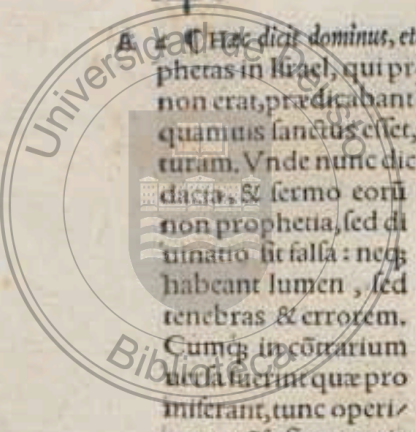 A ¶ Hæc dicit dominus, et
phetas in Israel, qui pr
non erat, prædicabant
quamuis sanctus esset,
turam. Vnde nunc dic
dacia, & sermo eorū
non prophetia, sed di
uinatio sit falsa: neq;
habeant lumen, sed
tenebras & errorem.
Cumq; in cōtrarium
uersa fuerint quæ pro
miserant, tunc operi⸗
Universidad de
Biblioteca